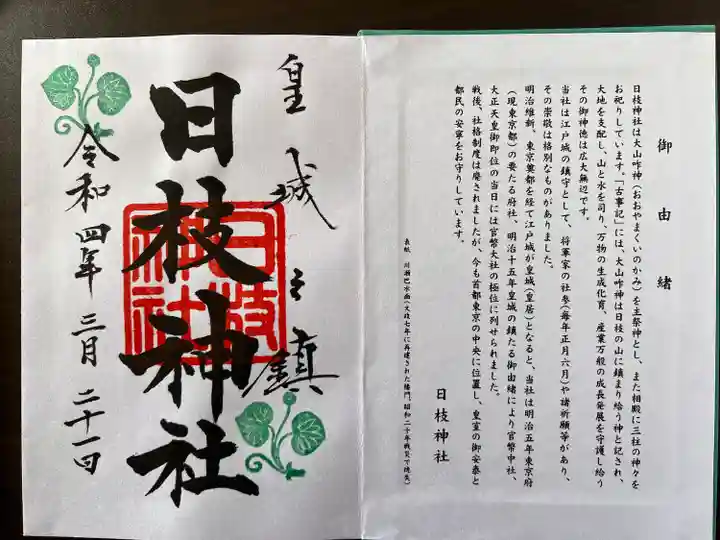 御由緒
日枝神社は大山咋神(おおやまくいのかみ)を主祭神とし、また相殿に三柱の神々を
お祀りしています。「古事記」には、大山咋神は日枝の山に鎮まり給う神と記され、
大地を支配し、山と水を司り、万物の生成化育、産業万般の成長発展を守護し給う
その御神徳は広大無辺です。
当社は江戸城の鎮守として、将軍家の社参(毎年正月六月)や諸祈願等があり、
その崇敬は格別なものがありました。
明治維新、東京奠都を経て江戸城が皇城(皇居)となると、当社は明治五年東京府
(現東京都)の要たる府社、明治十五年皇城の鎮たる御由緒により官幣中社、
大正天皇御即位の当日には官幣大社の極位に列せられました。
戦後、社格制度は廃されましたが、今も首都東京の中央に位置し、皇室の御安泰と
都民の安寧をお守りしています。
表紙 川瀬巴水画
日枝神社
皇城之鎮
日枝神社
日枝
神社
令和四年三月二十一日